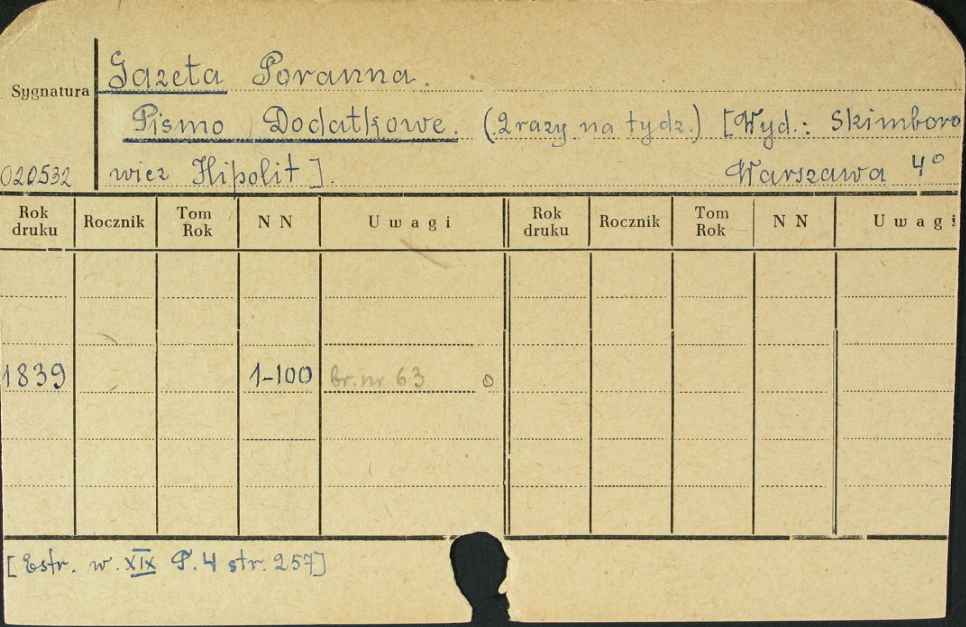 Gazeta Poranna.
Sygnatura
Pismo Dodatkowe. (2 razy na tydz.) [Wyd.: Skimboro
020532 wicz Hipolit]. Warszawa 4°
Rok druku Rocznik Tom Rok N N Uwagi Rok druku Rocznik Tom Rok N N Uwagi
1839 1-100 br. nr 63 0
[Estr. w. XIX T. 4 str. 257]